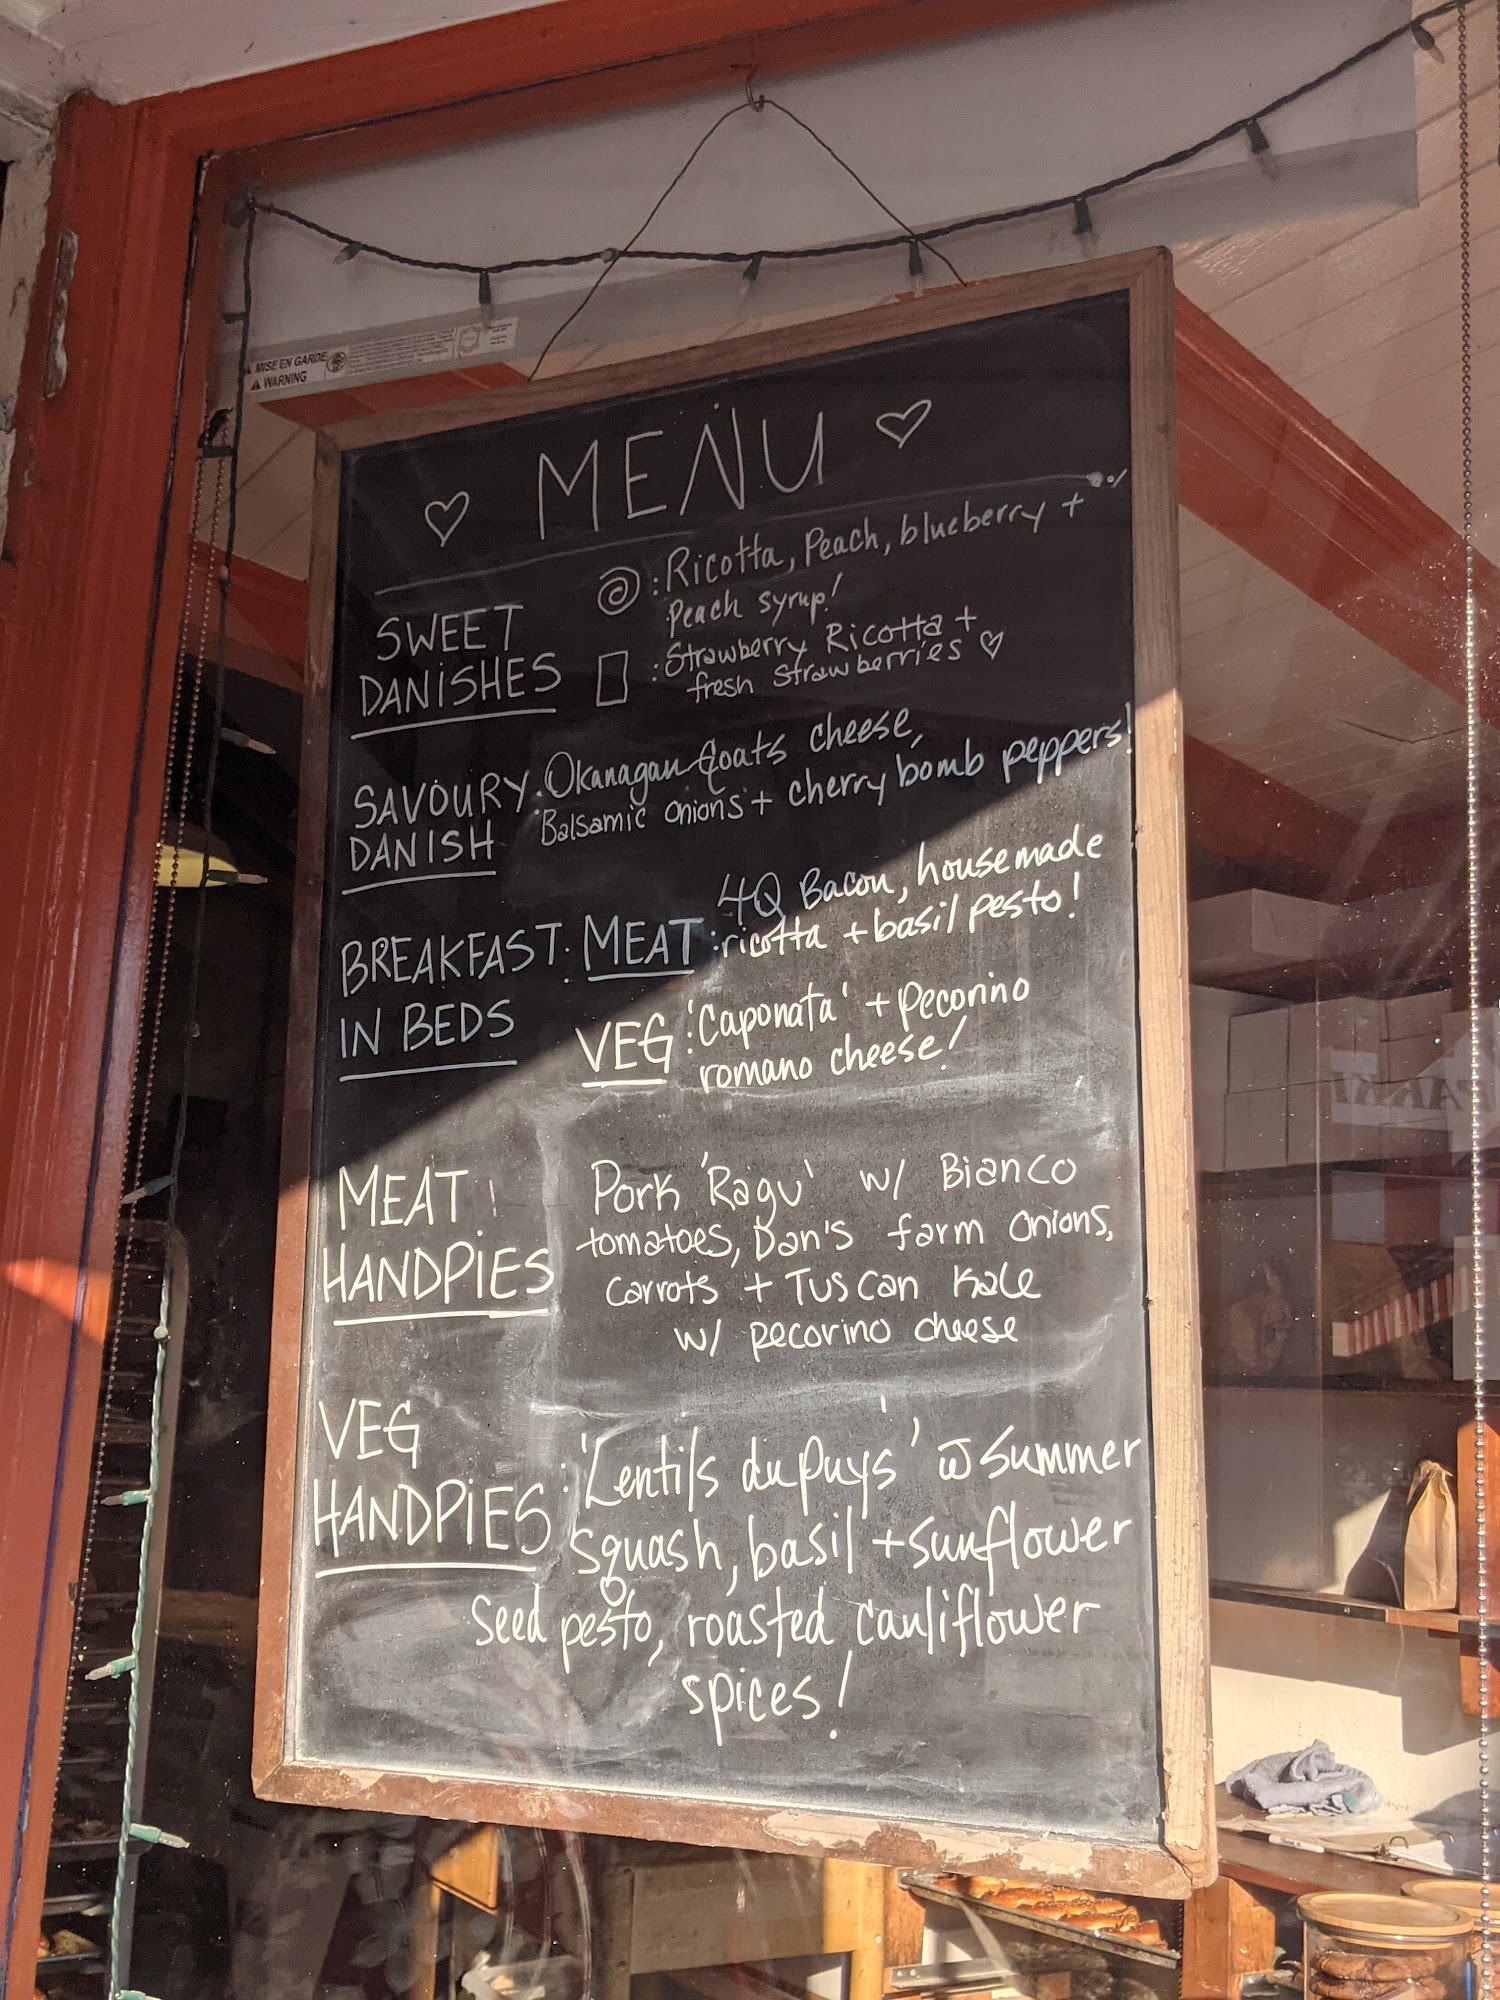 MISE EN GARDE
WARNING
MENU
SWEET
DANISHES
: Ricotta, Peach, blueberry +
Peach syrup!
: Strawberry Ricotta +
fresh strawberries
SAVOURY
DANISH
: Okanagan Goats cheese,
Balsamic onions + cherry bomb peppers!
BREAKFAST:
IN BEDS
MEAT:
4Q Bacon, housemade
ricotta + basil pesto!
VEG:
'Caponata' + pecorino
romano cheese!
MEAT
HANDPIES
Pork 'Ragu' w/ Bianco
tomatoes, Dan's farm onions,
carrots + Tuscan Kale
w/ pecorino cheese
VEG
HANDPIES
: 'Lentils du Puys' w Summer
Squash, basil + sunflower
Seed pesto, roasted cauliflower
spices!